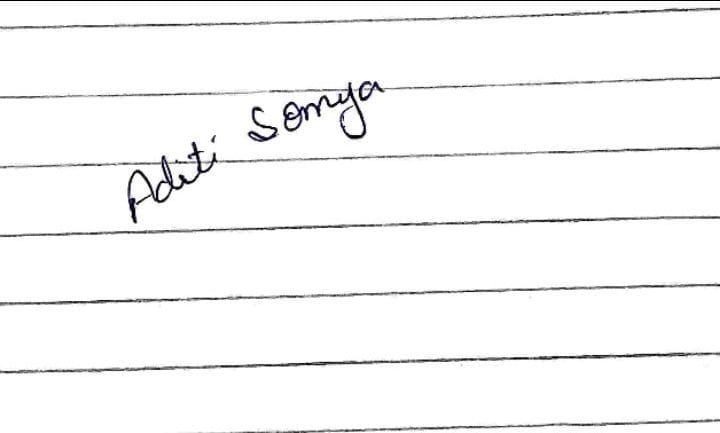 Aditi Somya